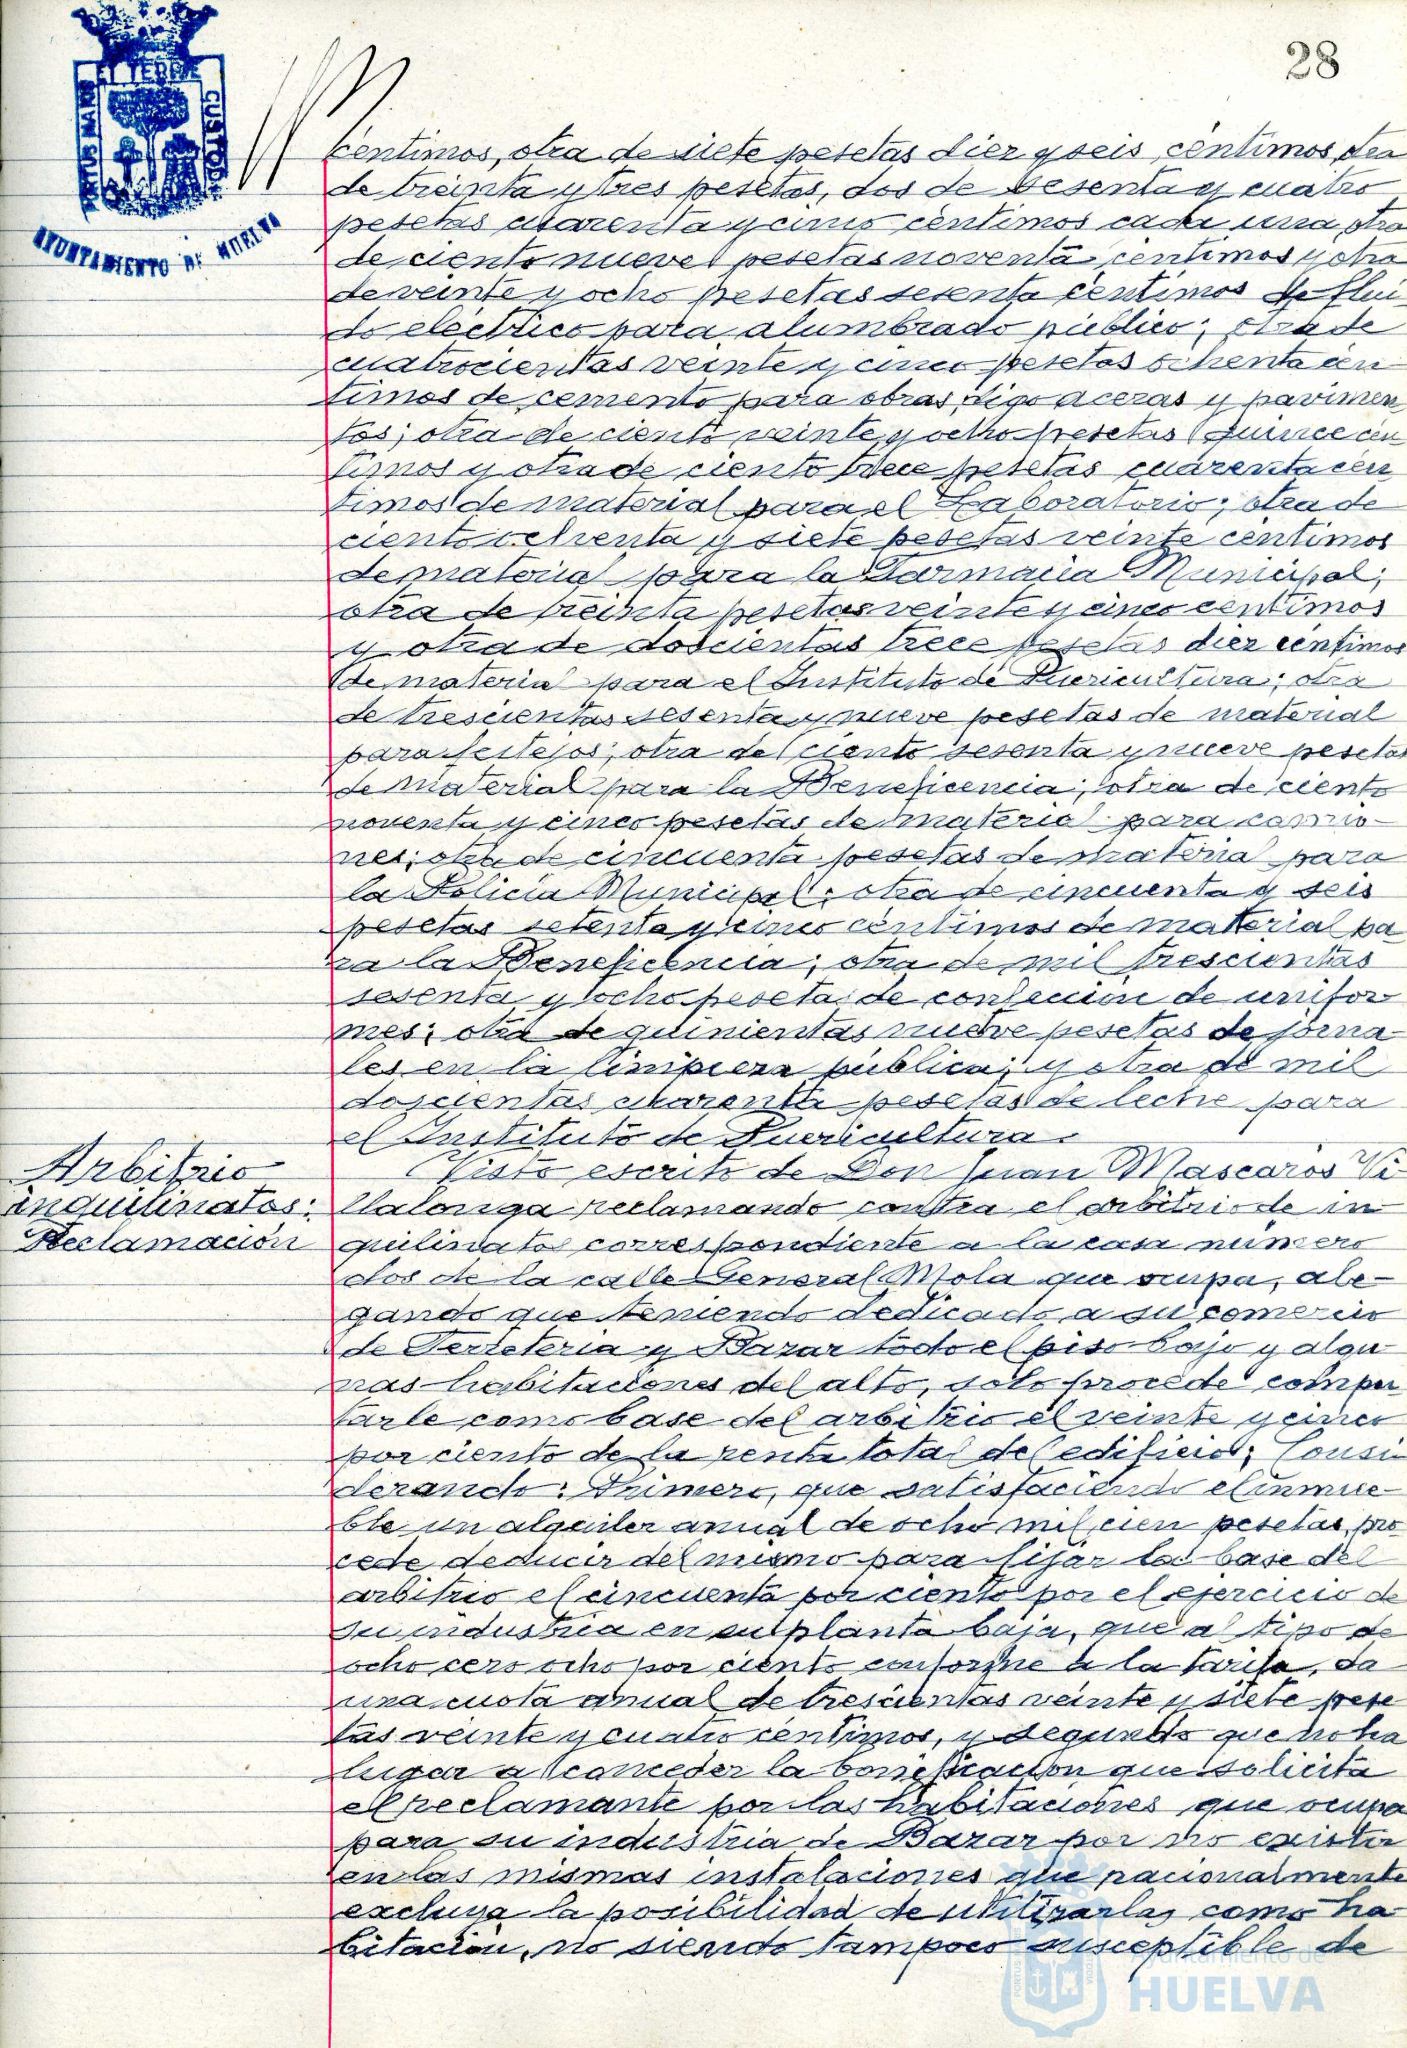 28
PORTUS MARIS
ET TERRE
CUSTODI
AYUNTAMIENTO DE HUELVA
céntimos, otra de siete pesetas diez y seis céntimos, otra
de treinta y tres pesetas, dos de sesenta y cuatro
pesetas cuarenta y cinco céntimos cada una, otra
de ciento nueve pesetas noventa céntimos y otra
de veinte y ocho pesetas sesenta céntimos de flui-
do eléctrico para alumbrado público; otra de
cuatrocientas veinte y cinco pesetas ochenta cén-
timos de cemento para obras, digo aceras y pavimen
tos; otra de ciento veinte y ocho pesetas quince cén
timos y otra de ciento trece pesetas cuarenta cén
timos de material para el Laboratorio; otra de
ciento ochenta y siete pesetas veinte céntimos
de material para la Farmacia Municipal;
otra de treinta pesetas veinte y cinco céntimos
y otra de doscientas trece pesetas diez céntimos
de material para el Instituto de Puericultura; otra
de trescientas sesenta y nueve pesetas de material
para festejos; otra de ciento sesenta y nueve pesetas
de material para la Beneficencia; otra de ciento
noventa y cinco pesetas de material para camio-
nes; otra de cincuenta pesetas de material para
la Policía Municipal; otra de cincuenta y seis
pesetas setenta y cinco céntimos de material pa
ra la Beneficencia; otra de mil trescientas
sesenta y ocho pesetas de confección de unifor
mes; otra de quinientas nueve pesetas de jorna-
les en la limpieza pública; y otra de mil
doscientas cuarenta pesetas de leche para
el Instituto de Puericultura.
Arbitrio
inquilinatos:
Reclamación
Visto escrito de Don Juan Mascarós Vi-
llalonga reclamando contra el arbitrio de in
quilinatos correspondiente a la casa número
dos de la calle General Mola que ocupa, ale-
gando que teniendo dedicado a su comercio
de Ferretería y Bazar todo el piso bajo y algu
nas habitaciones del alto, solo procede compu
tarle como base del arbitrio el veinte y cinco
por ciento de la renta total del edificio; Consi
derando: Primero, que satisfaciendo el inmue-
ble un alquiler anual de ocho mil cien pesetas, pro
cede deducir del mismo para fijar la base del
arbitrio el cincuenta por ciento por el ejercicio de
su industria en su planta baja, que al tipo de
ocho cero ocho por ciento conforme a la tarifa, da
una cuota anual de trescientas veinte y siete pese
tas veinte y cuatro céntimos, y segundo que no ha
lugar a conceder la bonificación que solicita
el reclamante por las habitaciones que ocupa
para su industria de Bazar por no existir
en las mismas instalaciones que racionalmente
excluya la posibilidad de utilizarlas como ha
bitación, no siendo tampoco susceptible de
Ayuntamiento de
HUELVA